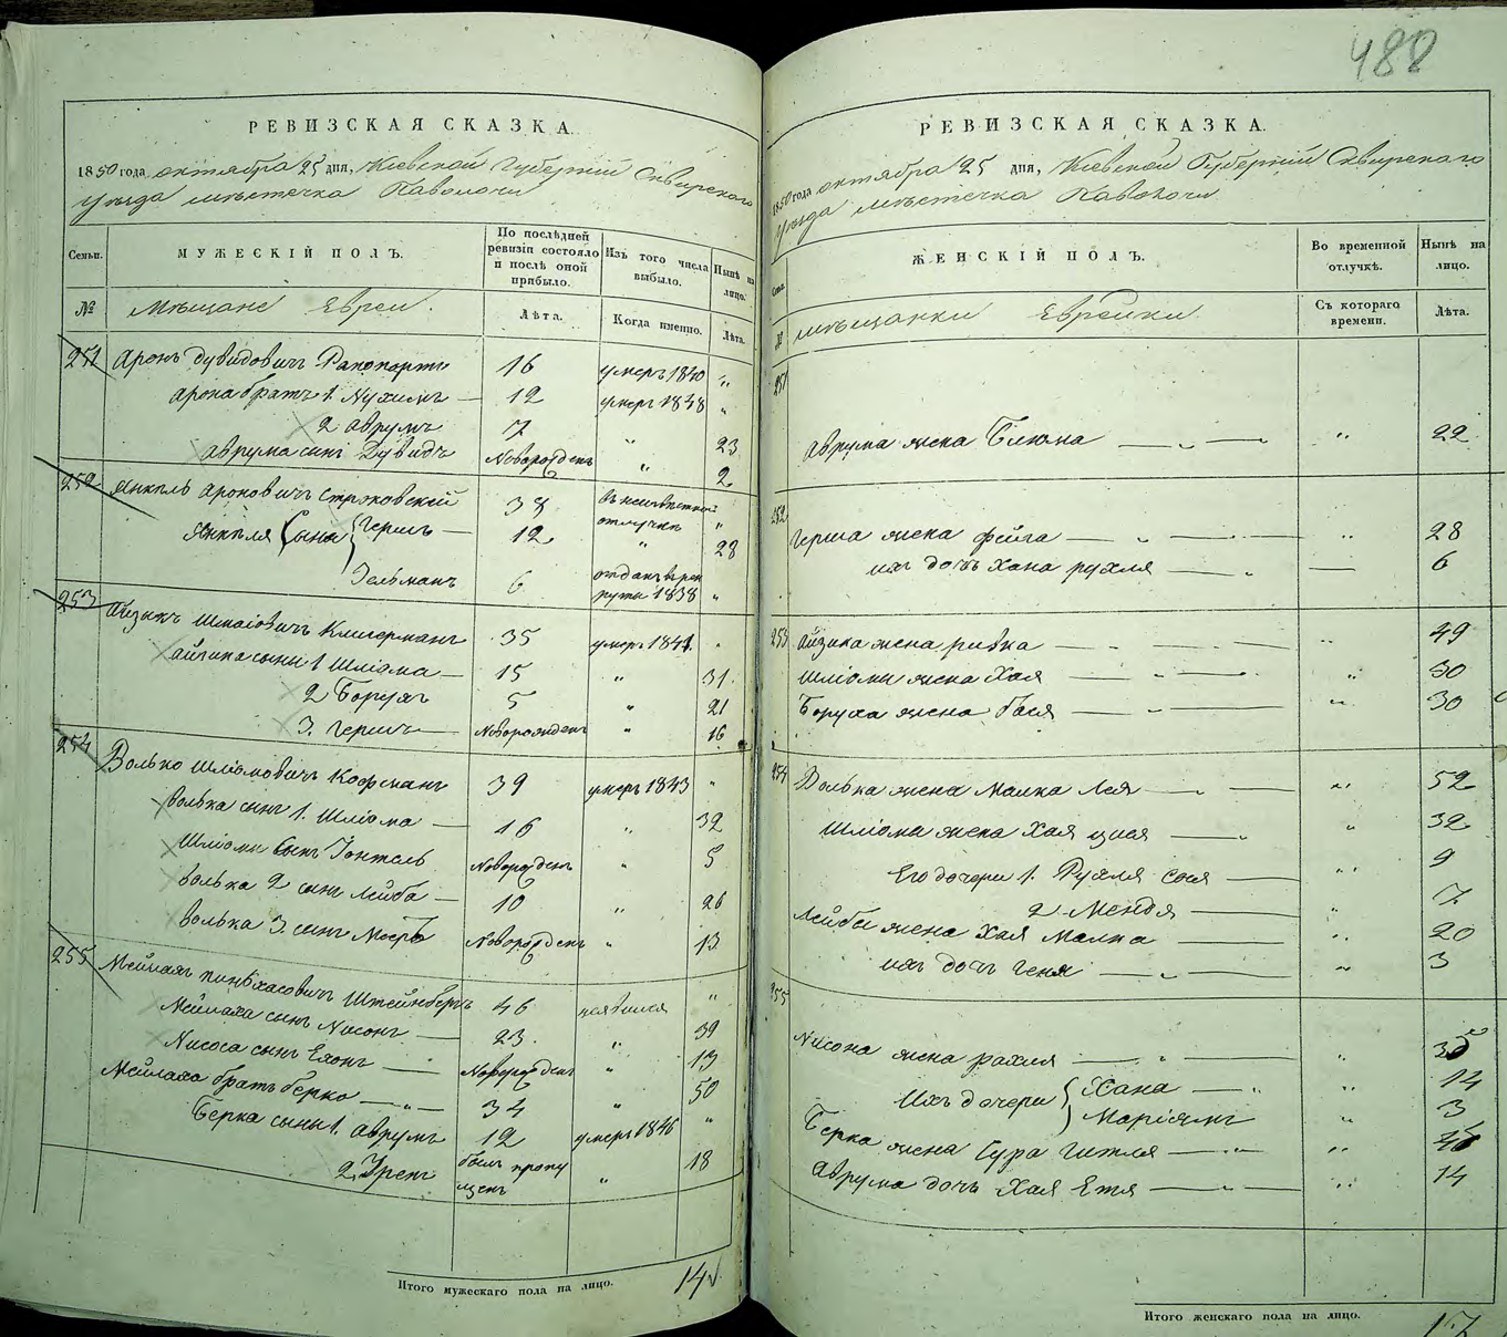 488
РЕВИЗСКАЯ СКАЗКА.
1850 года октября 25 дня, Кіевской Губерніи Сквирскаго
уезда местечка Паволочи
Семьи.
МУЖЕСКІЙ ПОЛЪ.
По послѣдней ревизіи состояло и послѣ оной прибыло.
Изъ того числа выбыло.
Нынѣ на лицо.
№
Мѣщане Евреи.
Лѣта.
Когда именно.
Лѣта.
251 Аронъ Дувидовичъ Рапопортъ 16 умеръ 1840 "
Арона братъ 1. Нухимъ — 12 умеръ 1838 "
2 Аврумъ 7 " 23
Аврума сынъ Дувидъ Новорожденъ " 2
252 Янкель Ароновичъ 38 "
Янкеля сына Гершъ — 12 " 28
Зельманъ 6 1838 "
253 Айзыкъ 35 умеръ 1841. "
Айзика сыны 1 Шліома — 15 " 31.
2 Борухъ 5 " 21
3. Гершъ — Новорожденъ " 16
254 Волько Шліомовичъ Кофманъ 39 умеръ 1843 "
Волька сынъ 1. Шліома — 16 " 32
Шліомы сынъ Іонтель Новорожденъ " 5
Волька 2 сынъ Лейба — 10 " 26
Волька 3 сынъ Новорожденъ " 13
255 Мейлахъ Пинхасовичъ Штейнбергъ 46 "
Мейлаха сынъ Нисонъ — 23. " 39
сынъ Новорожденъ " 13
Мейлаха братъ Берко — " — 34 " 50
Берка сыны 1. Аврумъ 12 умеръ 1846 "
2 былъ пропущенъ " 18
Итого мужескаго пола на лицо. 14
РЕВИЗСКАЯ СКАЗКА.
1850 года октября 25 дня, Кіевской Губерніи Сквирскаго
уезда местечка Паволочи
ЖЕНСКІЙ ПОЛЪ.
Во временной отлучкѣ.
Нынѣ на лицо.
№
Мѣщанки Еврейки
Съ котораго времени.
Лѣта.
251
Аврума жена Блюма — " — " 22
252
Герша жена Фейга — " — " 28
ихъ дочь Хана Рухля — " — 6
253 Айзика жена Ривка — " — " 49
Шліомы жена Хая — " — " 30
Боруха жена Бася — " — " 30
254 Волька жена Малка Лея — " — " 52
Шліомы жена Хая — " " 32
Его дочери 1. Рухля Сося — " 9
2 — " 7
Лейбы жена Хая Малка — " 20
ихъ дочь Геня — " — " 3
255
Нисона жена Рахиля — " — " 35
Ихъ дочери Хана — " " 14
Маріямъ " 3
Берка жена Сура Гитля — " "
Аврума дочь Хая Етя — " — " 14
Итого женскаго пола на лицо. 17